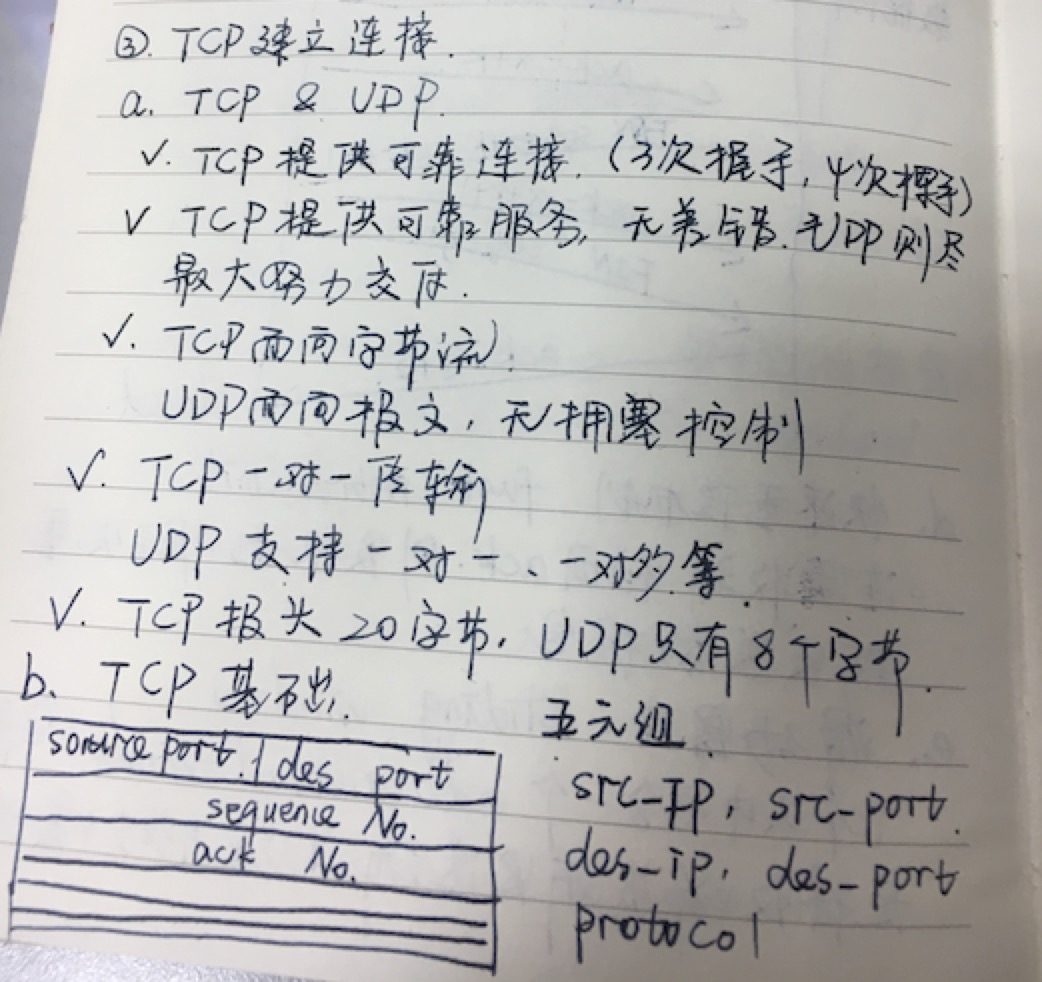 ③. TCP建立连接.
a. TCP & UDP.
√. TCP提供可靠连接. (3次握手, 4次挥手)
√ TCP提供可靠服务, 无差错. UDP则尽
最大努力交付.
√. TCP面向字节流.
UDP面向报文, 无拥塞控制
√. TCP一对一传输
UDP支持一对一、一对多等.
√. TCP报头20字节, UDP只有8个字节.
b. TCP基础.
source port. | des port
sequence No.
ack No.
五元组.
src-IP, src-port.
des-ip, des-port
protocol